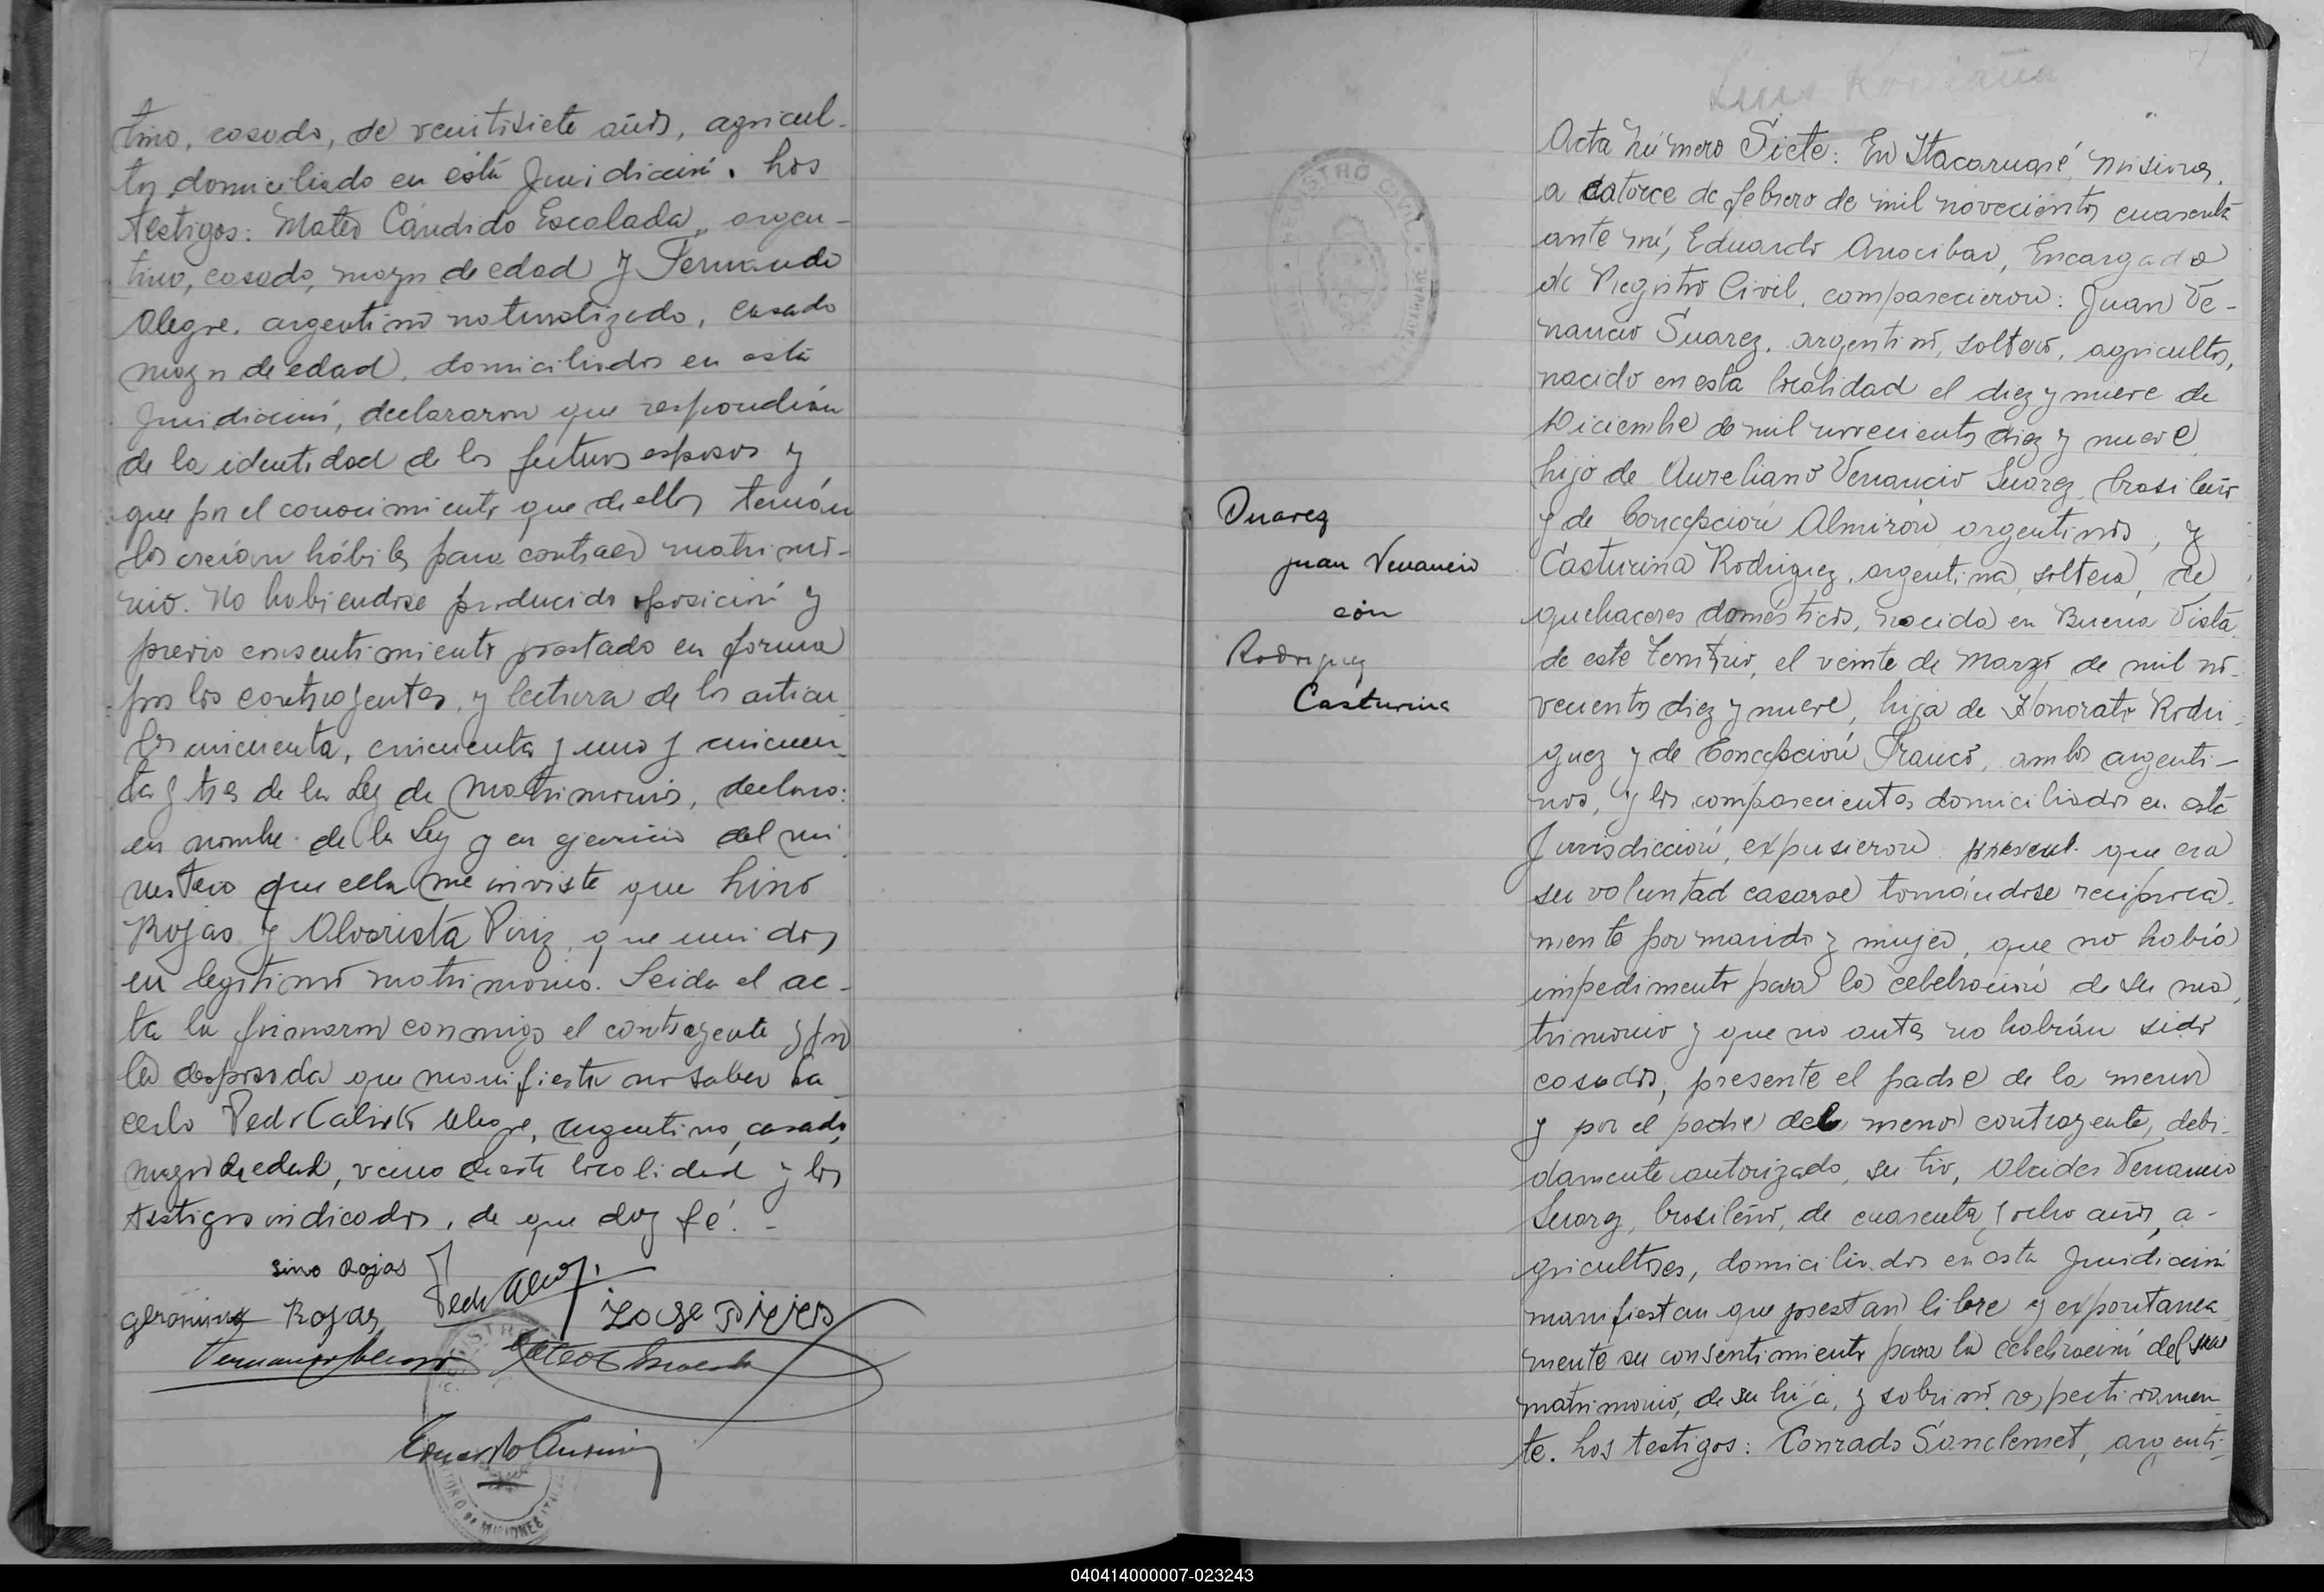 tino, casado, de veintisiete años, agricul-
tor, domiciliado en esta Juridición. Los
testigos: Mateo Cándido Escalada, argen-
tino, casado, mayor de edad y Fernando
Alegre, argentino naturalizado, casado
mayor de edad, domiciliados en esta
Juridición, declararon que respondían
de la identidad de los futuros esposos y
que por el conocimiento que de ellos tenían
los creían hábiles para contraer matrimo-
nio. No habiendose producido oposición y
previo consentimiento prestado en forma
por los contrayentes, y lectura de los articu-
los cincuenta, cincuenta y uno y cincuen-
ta y tres de la Ley de Matrimonio, declaro:
en nombre de la Ley y en ejercicio del mi
nisterio que ella me inviste que Lino
Rojas y Alvarista Piriz, que unidos
en legitimo matrimonio. Leida el ac-
ta la firmaron conmigo el contrayente y por
la desposada que manifiesta no saber ha-
cerlo Pedro Calixto Alegre, argentino, casado,
mayor de edad, vecino de esta localidad y los
testigos indicados, de que doy fé. -
Lino Rojas
Geronimo Rojas
Jose
REGISTRO
MISIONES
Suarez
Juan Venancio
con
Rodriguez
Casturina
REGISTRO CIVIL
Luis
7
Acta Número Siete: En Itacaruaré, Misiones,
a catorce de febrero de mil novecientos cuarenta
ante mí, Eduardo Anocibar, Encargado
de Registro Civil, comparecieron: Juan Ve-
nancio Suarez, argentino, soltero, agricultor,
nacido en esta localidad el diez y nueve de
Diciembre de mil novecientos diez y nueve,
hijo de Aureliano Venancio Suarez, brasileño
y de Concepción Almirón argentinos, y
Casturina Rodriguez, argentina, soltera, de
quehaceres domésticos, nacida en Buena Vista
de este Territorio, el veinte de Marzo de mil no-
vecientos diez y nueve, hija de Honorato Rodri-
guez y de Concepción Franco, ambos argenti-
nos, y los comparecientes domiciliados en esta
Jurisdicción, expusieron present. que era
su voluntad casarse tomándose reciproca-
mente por marido y mujer, que no había
impedimento para la celebración de su ma-
trimonio y que no antes no habían sido
casados, presente el padre de la menor
y por el padre del menor contrayente, debi-
damente autorizado, su tio, Alcides Venancio
Suarez, brasileño, de cuarenta y ocho años, a-
gricultores, domiciliados en esta Juridición
manifiestan que prestan libre y expontanea
mente su consentimiento para la celebración del
matrimonio, de su hija, y sobrino respectivamen-
te. Los testigos: Conrado Sanclemet, argenti-
040414000007-023243